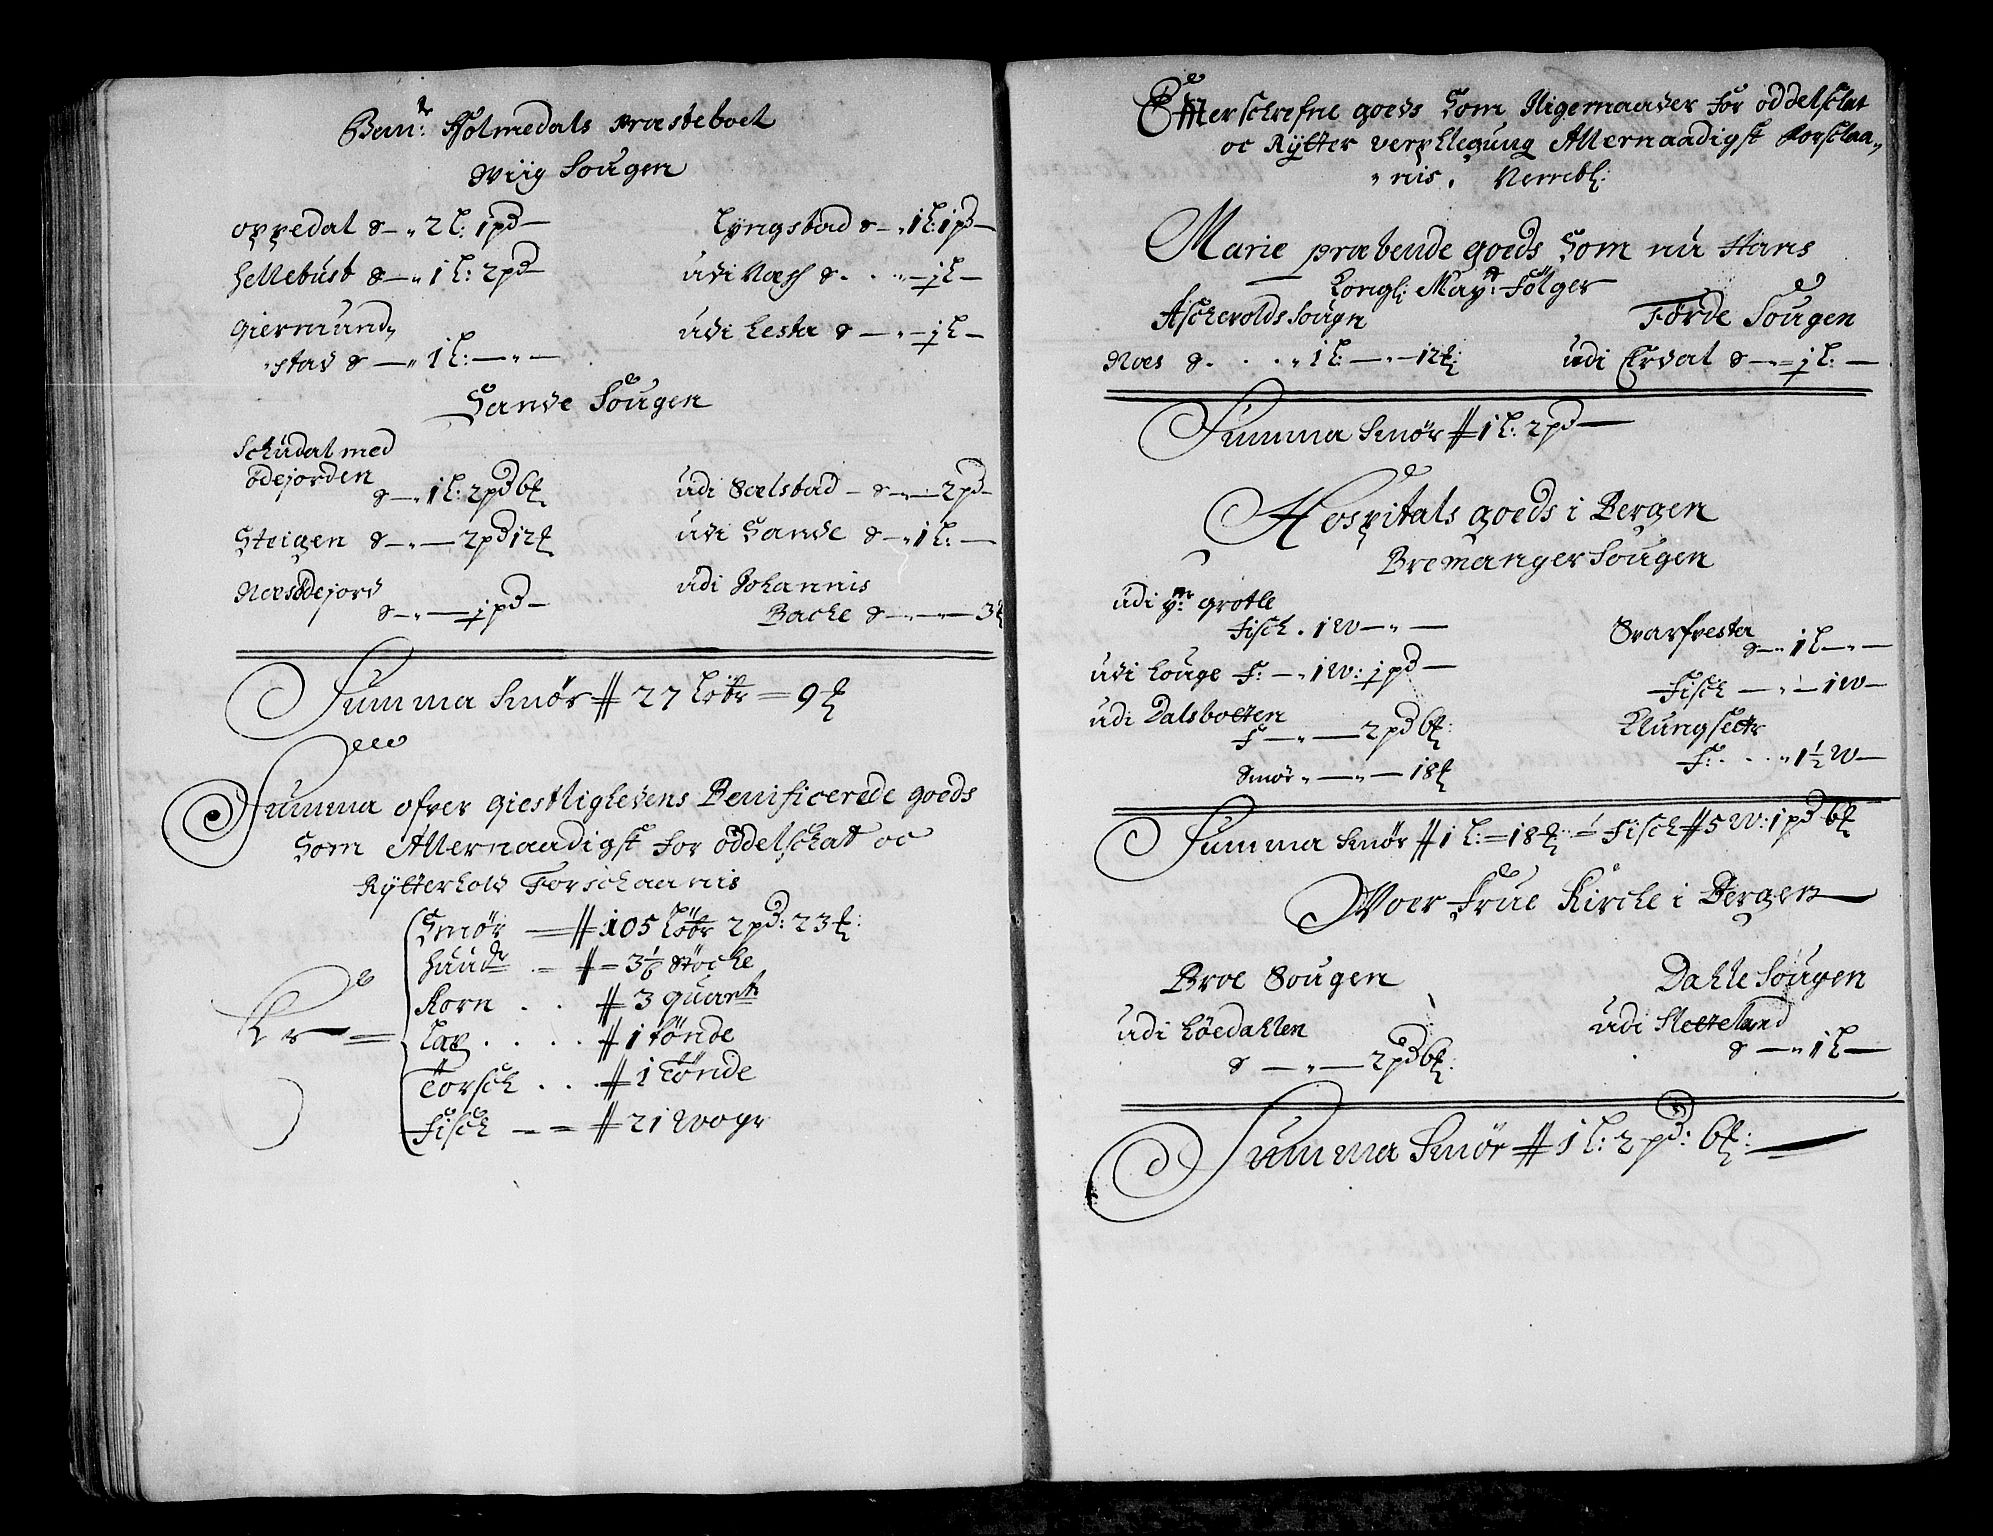 Benr: Holmedals Præsteboel
Wiig Sougen
Oppedal S — " 2 L: 1 pd —
Hellebust S — " 1 L: 2 pd —
Giermund,,
"stad S — " 1 L: — " —
Lyngstad S — " 1 L: 1 pd —
udi Næss S . . " — j L —
udi Lesta S — " — j L —
Sande Sougen
Schudal med
ödejorden
S — " 1 L: 2 pd 6 ℔
Steigen S — " — 2 pd 12 ℔
Næsödejord
S — " — j pd —
udi Sælstad — S — " — 2 pd —
udi Sande S — " 1 L: —
udi Johannis
Backe S — " — " — 3 ℔
Summa Smør # 27 Løbr = 9 ℔
Summa ofver Giestlighedens Benificerede goeds
Som Allernaadigst for oddelschat oc
Rytterhold Forschaanis
Er =
Smør = # 105 Løbr 2 pd: 23 ℔:
Huudr = # = 3 1/6 Støche
Korn . . # 3 quartr
Lax . . . . # 1 tønde
Torsch . . # 1 Tønde
Fisch — = # 21 Wogr
Efterschrefne goeds Som Iligemaader for oddelschat
oc Rytter verpflegung Allernaadigst Forschaa,,
"nis, Nemlig:
Marie præbende goeds Som nu Hans
Kongl: Mayt: Følger
Ascherolds Sougn
Næs S . . . " 1 L: — " — 12 ℔:
Førde Sougen
udi Erval S — " = j L: —
Summa Smør # 1 L: 2 pd —
Hospitals goeds i Bergen
Bremanger Sougen
udi yr: Grotle
Fisch . 1 W — " —
udi Louge F: — " 1 W: j pd —
udi Dalsbotten
F — " — 2 pd 6 ℔:
Smør " — " — 18 ℔
Svarfvesta
S — " 1 L — " —
Fisch — " — 1 W —
Klungsettr
F: . . " 1 1/2 W —
Summa Smør # 1 L: = 18 ℔: = Fisch # 5 W: 1 pd 6 ℔
Woer Frue Kirche i Bergen
Broe Sougen
udi Löedahlen
S — " — 2 pd 6 ℔:
Dahle Sougen
udi Sletteland
S — " 1 L —
Summa Smør # 1 L: 2 pd: 6 ℔: